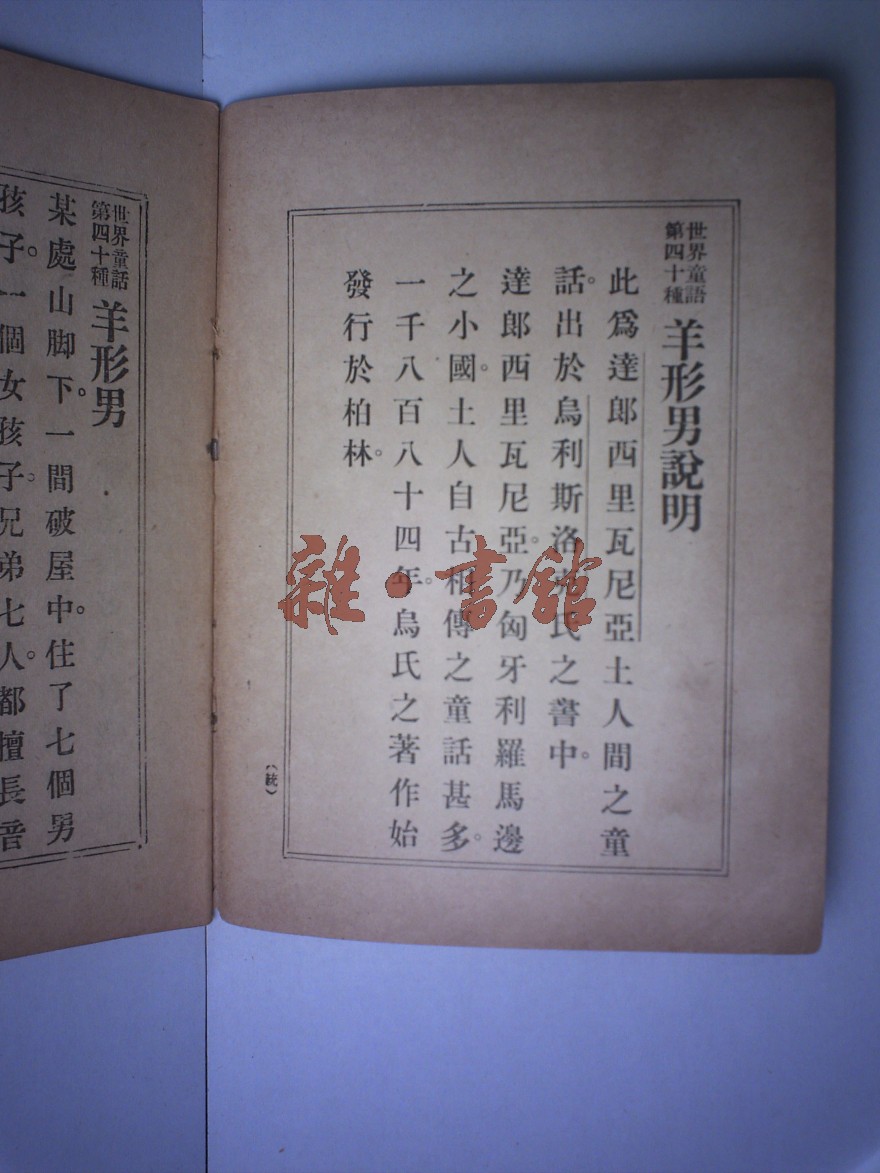 世界童語
第四十種
羊形男說明
此爲達郎西里瓦尼亞土人間之童
話。出於烏利斯洛氏之書中。
達郎西里瓦尼亞。乃匈牙利羅馬邊
之小國。土人自古相傳之童話甚多。
一千八百八十四年。烏氏之著作始
發行於柏林。
（統）
世界童話
第四十種
羊形男
某處山脚下。一間破屋中。住了七個男
孩子。一個女孩子。兄弟七人。都擅長音
雜·書館